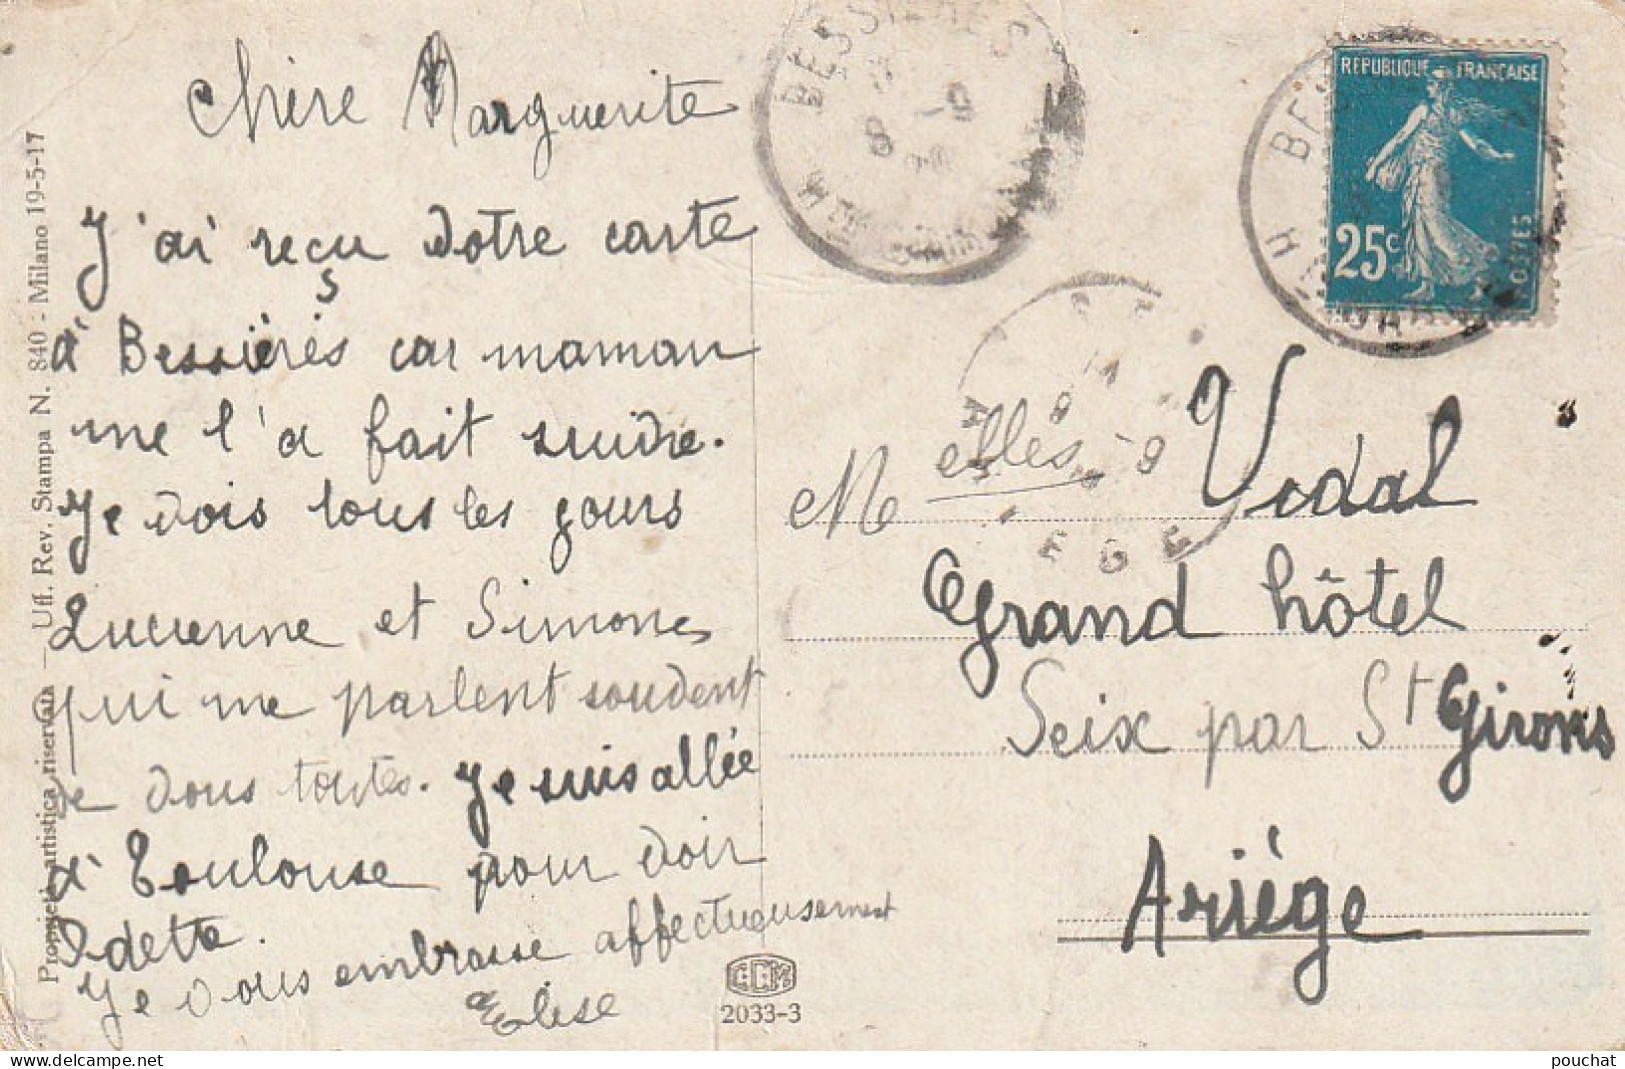 chère Marguerite
J'ai reçu votre carte
à Bessières car maman
me l'a fait suivre.
Je vois tous les jours
Lucienne et Simone
qui me parlent souvent
de vous toutes. Je suis allée
à Toulouse pour voir
Odette.
Je vous embrasse affectueusement
Elise
Proprietà artistica riservata - Uff. Rev. Stampa N. 840 - Milano 19-5-17
CCM
2033-3
BESSIERES
REPUBLIQUE FRANÇAISE
25c
POSTES
Melles Vidal
Grand hôtel
Seix par St Girons
Ariége
pouchat